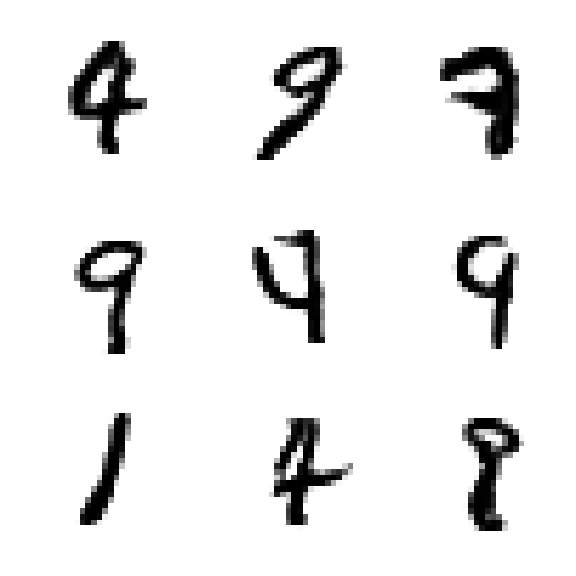 4 9 7
9 4 9
1 4 8